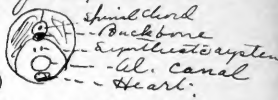 Spinal Chord
Backbone
Sympthicatic system
Al. Canal
Heart.